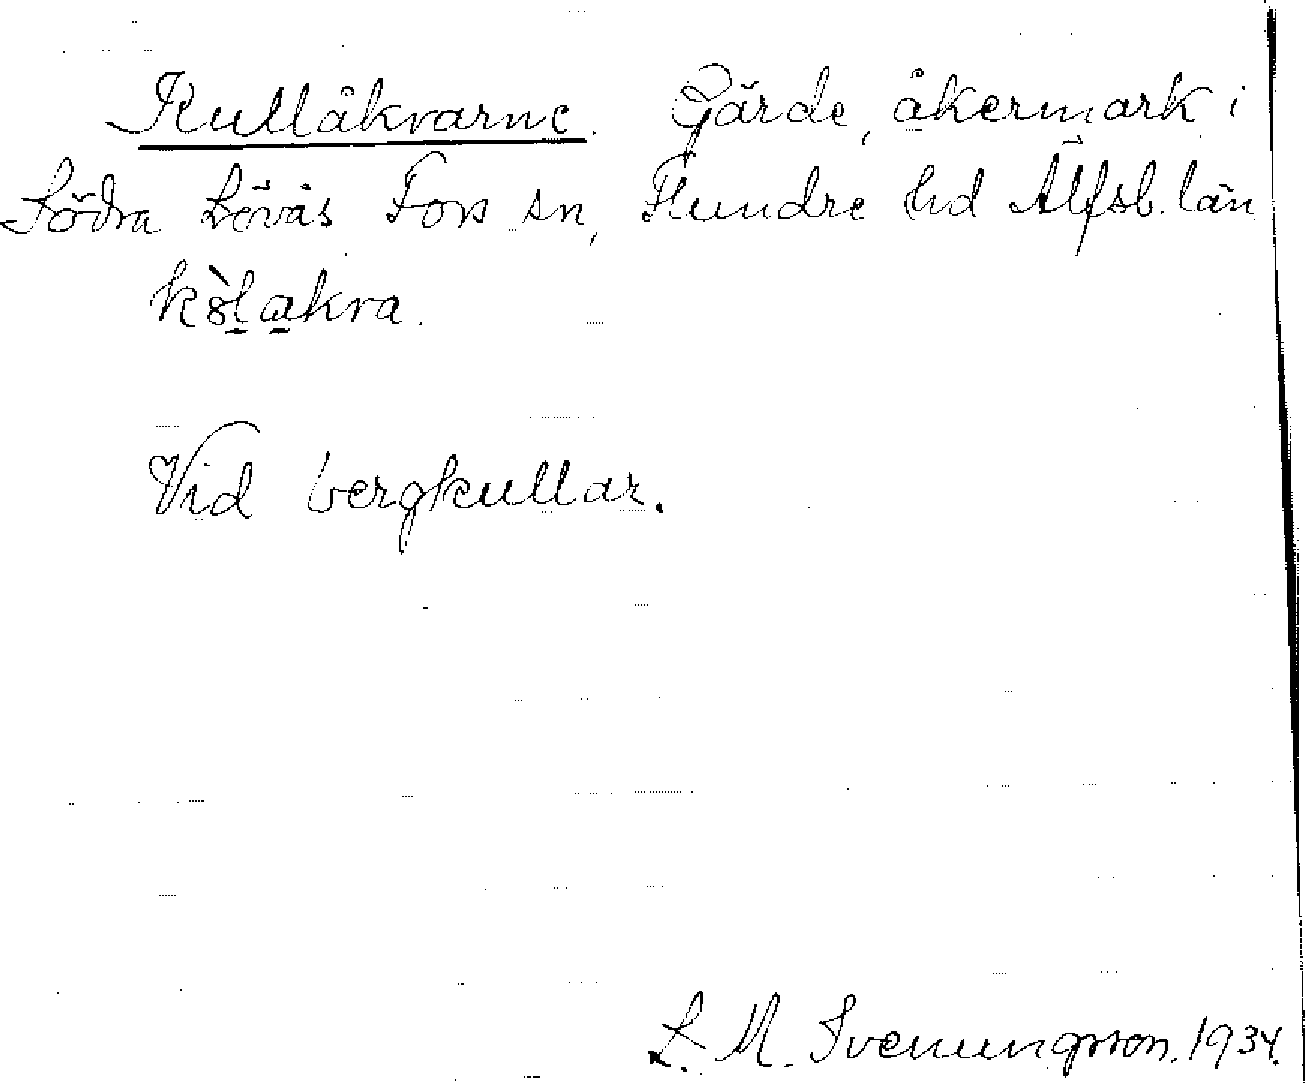 Kullåkrarne. Gärde, åkermark i
Södra Lövås Fors sn, Flundre hd Älfsb. län
kòlakra.
Vid bergkullar.
L. M. Svenungsson. 1934.